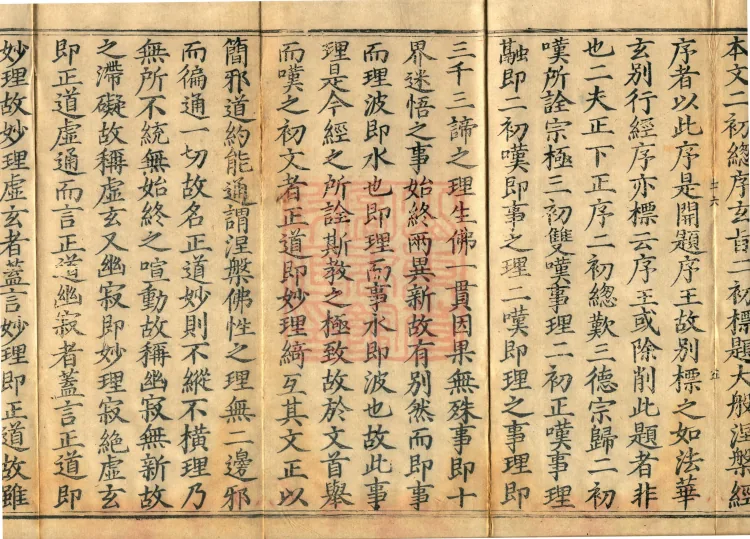 本文二初總序玄旨二初標題大般涅槃經
序者以此序是開題序王故別標之如法華
玄別行經序亦標云序王或除削此題者非
也二夫正下正序二初總歎三德宗歸二初
嘆所詮宗極三初雙嘆事理二初正嘆事理
融即二初嘆即事之理二嘆即理之事理即
三千三諦之理生佛一貫因果無殊事即十
界迷悟之事始終兩異新故有別然而即事
而理波即水也即理而事水即波也故此事
理是今經之所詮斯教之極致故於文首舉
而嘆之初文者正道即妙理綺互其文正以
簡邪道約能通謂涅槃佛性之理無二邊邪
而徧通一切故名正道妙則不縱不橫理乃
無所不統無始終之喧動故稱幽寂無新故
之滯礙故稱虛玄又幽寂即妙理寂絕虛玄
即正道虛通而言正道幽寂者蓋言正道即
妙理故妙理虛玄者蓋言妙理即正道故雖